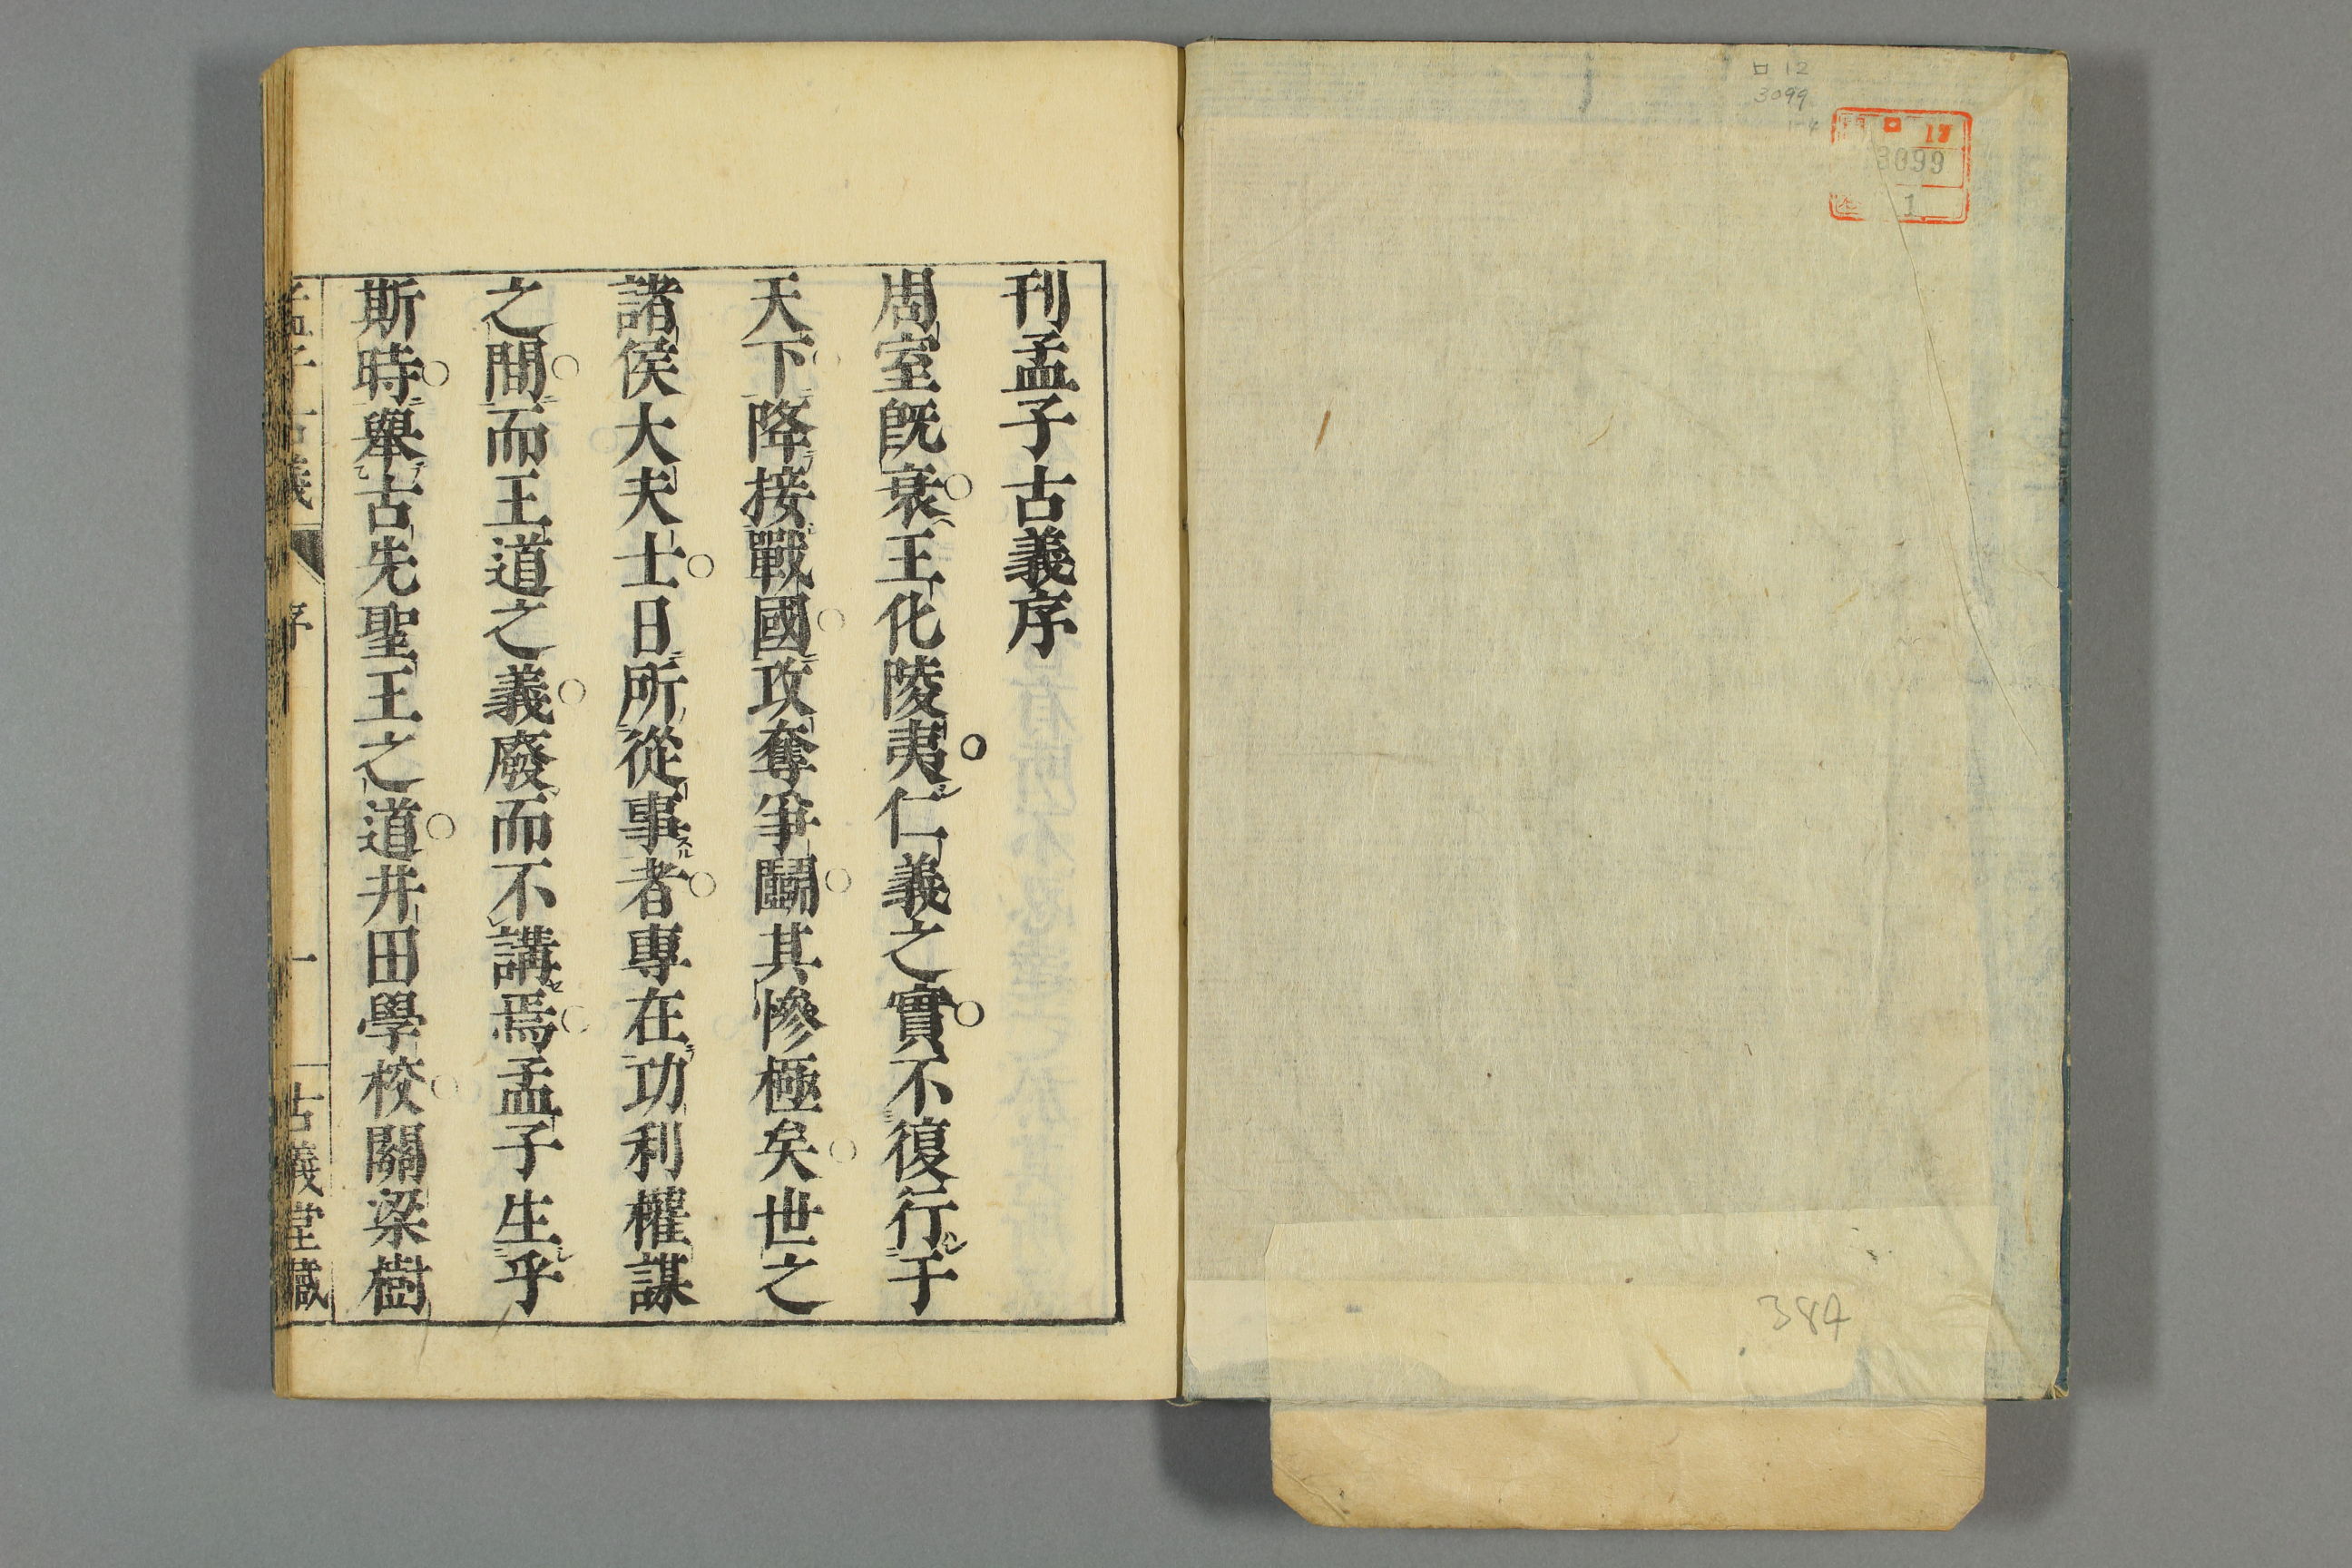 ロ 12
3099
1-4
ロ 12
3099
1
384
刊孟子古義序
周室既衰王化陵夷仁義之實不復行于
天下降接戰國攻奪爭鬭其慘極矣世之
諸侯大夫士日所從事スル者專在功利權謀
之間而王道之義廢而不講セ焉孟子生乎
斯時舉古先聖王之道井田學校關梁樹
孟子古義 序 一 古義堂藏